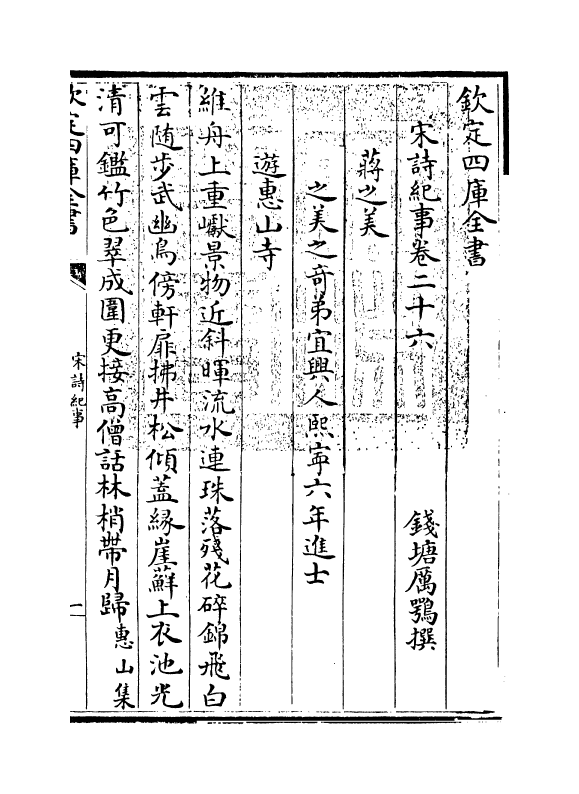 欽定四庫全書
宋詩紀事卷二十六
錢塘厲鶚撰
蔣之美
之美之奇弟宜興人熙寧六年進士
遊惠山寺
維舟上重巘景物近斜暉流水連珠落殘花碎錦飛白
雲随步武幽鳥傍軒扉拂井松傾蓋緣崖蘚上衣池光
清可鑑竹色翠成圍更接高僧話林梢帶月歸惠山集
欽定四庫全書
宋詩紀事
一